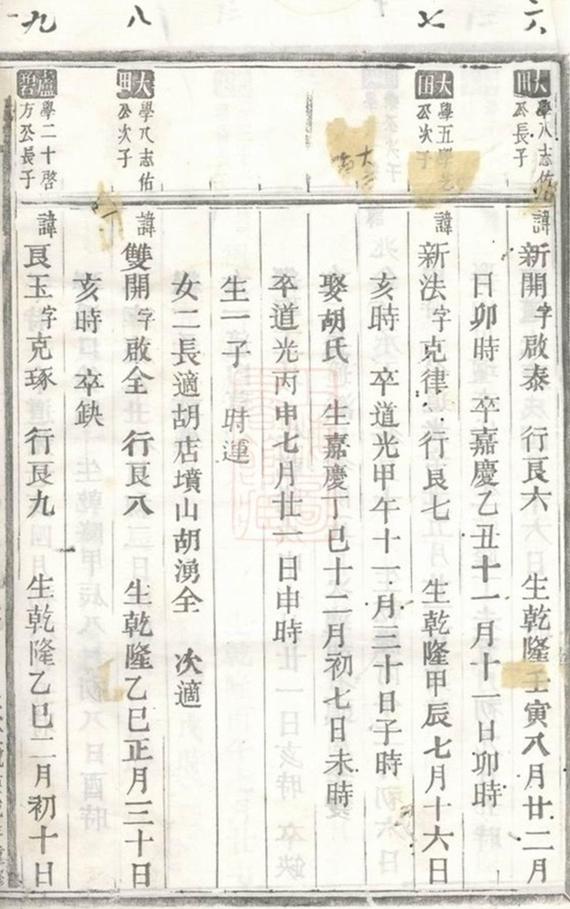 六
七
八
九
大田
學八志佑
公長子
大田
學五學
公次子
大田
學八志佑
公次子
盧碧
學二十啓
方公長子
諱新開字啟泰 行良六 生乾隆壬寅八月廿二月
日卯時 卒嘉慶乙丑十一月十一日卯時
諱新法字克律 行良七 生乾隆甲辰七月十六日
亥時 卒道光甲午十一月三十日子時
娶胡氏 生嘉慶丁巳十二月初七日未時
卒道光丙申七月廿一日申時
生一子 時運
女二長適胡店墳山胡湧全 次適
諱雙開字啟全 行良八 生乾隆乙巳正月三十日
亥時 卒缺
諱良玉字克琢 行良九 生乾隆乙巳二月初十日